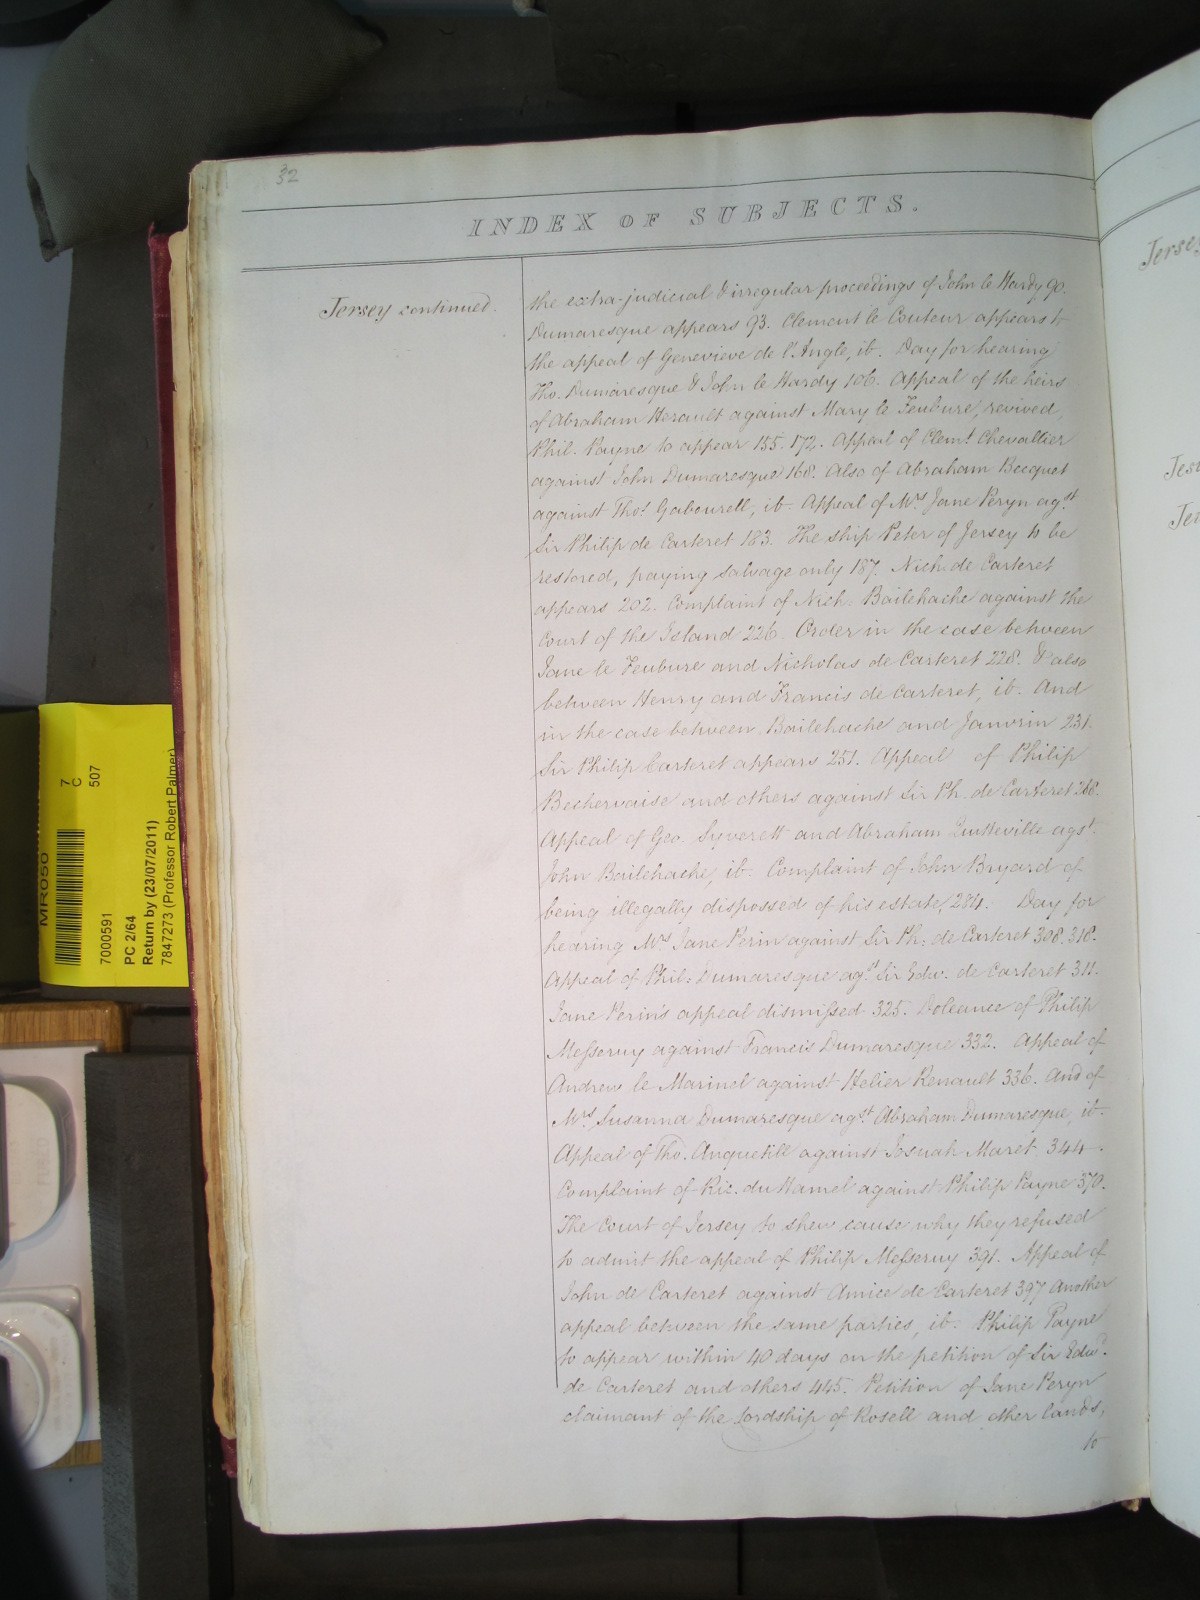 32
INDEX OF SUBJECTS.
Jersey continued.
the extra-judicial & irregular proceedings of John le Hardy 90.
Dumaresque appears 93. Clement le Couteur appears to
the appeal of Genevieve de l'Angle, ib. Day for hearing
Tho. Dumaresque & John le Hardy 106. Appeal of the heirs
of Abraham Herault against Mary le Feubure, revived,
Phil. Payne to appear 155. 172. Appeal of Clemt. Chevallier
against John Dumaresque 168. Also of Abraham Becquet
against Thos. Gabourell, ib. Appeal of Mrs. Jane Peryn agst.
Sir Philip de Carteret 183. The ship Peter of Jersey to be
restored, paying salvage only 187. Nich. de Carteret
appears 202. Complaint of Nich. Bailehache against the
Court of the Island 226. Order in the case between
Jane le Feubure and Nicholas de Carteret 228. & also
between Henry and Francis de Carteret, ib. And
in the case between Bailehache and Janvrin 231.
Sir Philip Carteret appears 251. Appeal of Philip
Beshervaise and others against Sir Ph. de Carteret 268.
Appeal of Geo. Syverett and Abraham Quitteville agst.
John Bailehache, ib. Complaint of John Bryard of
being illegally dispossed of his estate, 284. Day for
hearing Mrs. Jane Perin against Sir Ph: de Carteret 308. 318.
Appeal of Phil: Dumaresque agst. Sir Edw. de Carteret 311.
Jane Perin's appeal dismissed 325. Doleance of Philip
Messeruy against Francis Dumaresque 332. Appeal of
Andrew le Marinel against Helier Renault 336. And of
Mrs. Susanna Dumaresque agst. Abraham Dumaresque, ib.
Appeal of Tho. Anquetill against Josuah Maret 344.
Complaint of Ric. du Hamel against Philip Payne 370.
The Court of Jersey to shew cause why they refused
to admit the appeal of Philip Messeruy 391. Appeal of
John de Carteret against Amice de Carteret 397 Another
appeal between the same parties, ib: Philip Payne
to appear within 40 days on the petition of Sir Edwd.
de Carteret and others 445. Petition of Jane Peryn
claimant of the Lordship of Rosell and other lands,
to
MR050
7
C
507
7000591
PC 2/64
Return by (23/07/2011)
7847273 (Professor Robert Palmer)